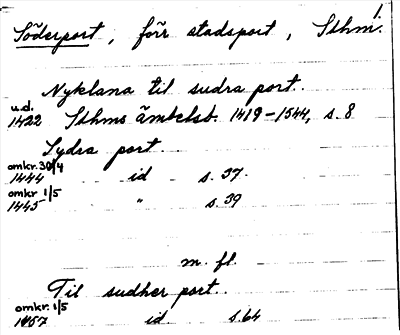 1.
Söderport, förr stadsport, Sthm.
Nyklana til sudra port..
u.d.
1422 Sthms ämbetsb. 1419-1544, s. 8
Sydra port..
omkr. 30/4
1444 id s. 37.
omkr 1/5
1445 " s. 39
m. fl.
Til sudher port..
omkr. 1/5
1457 id. s. 64